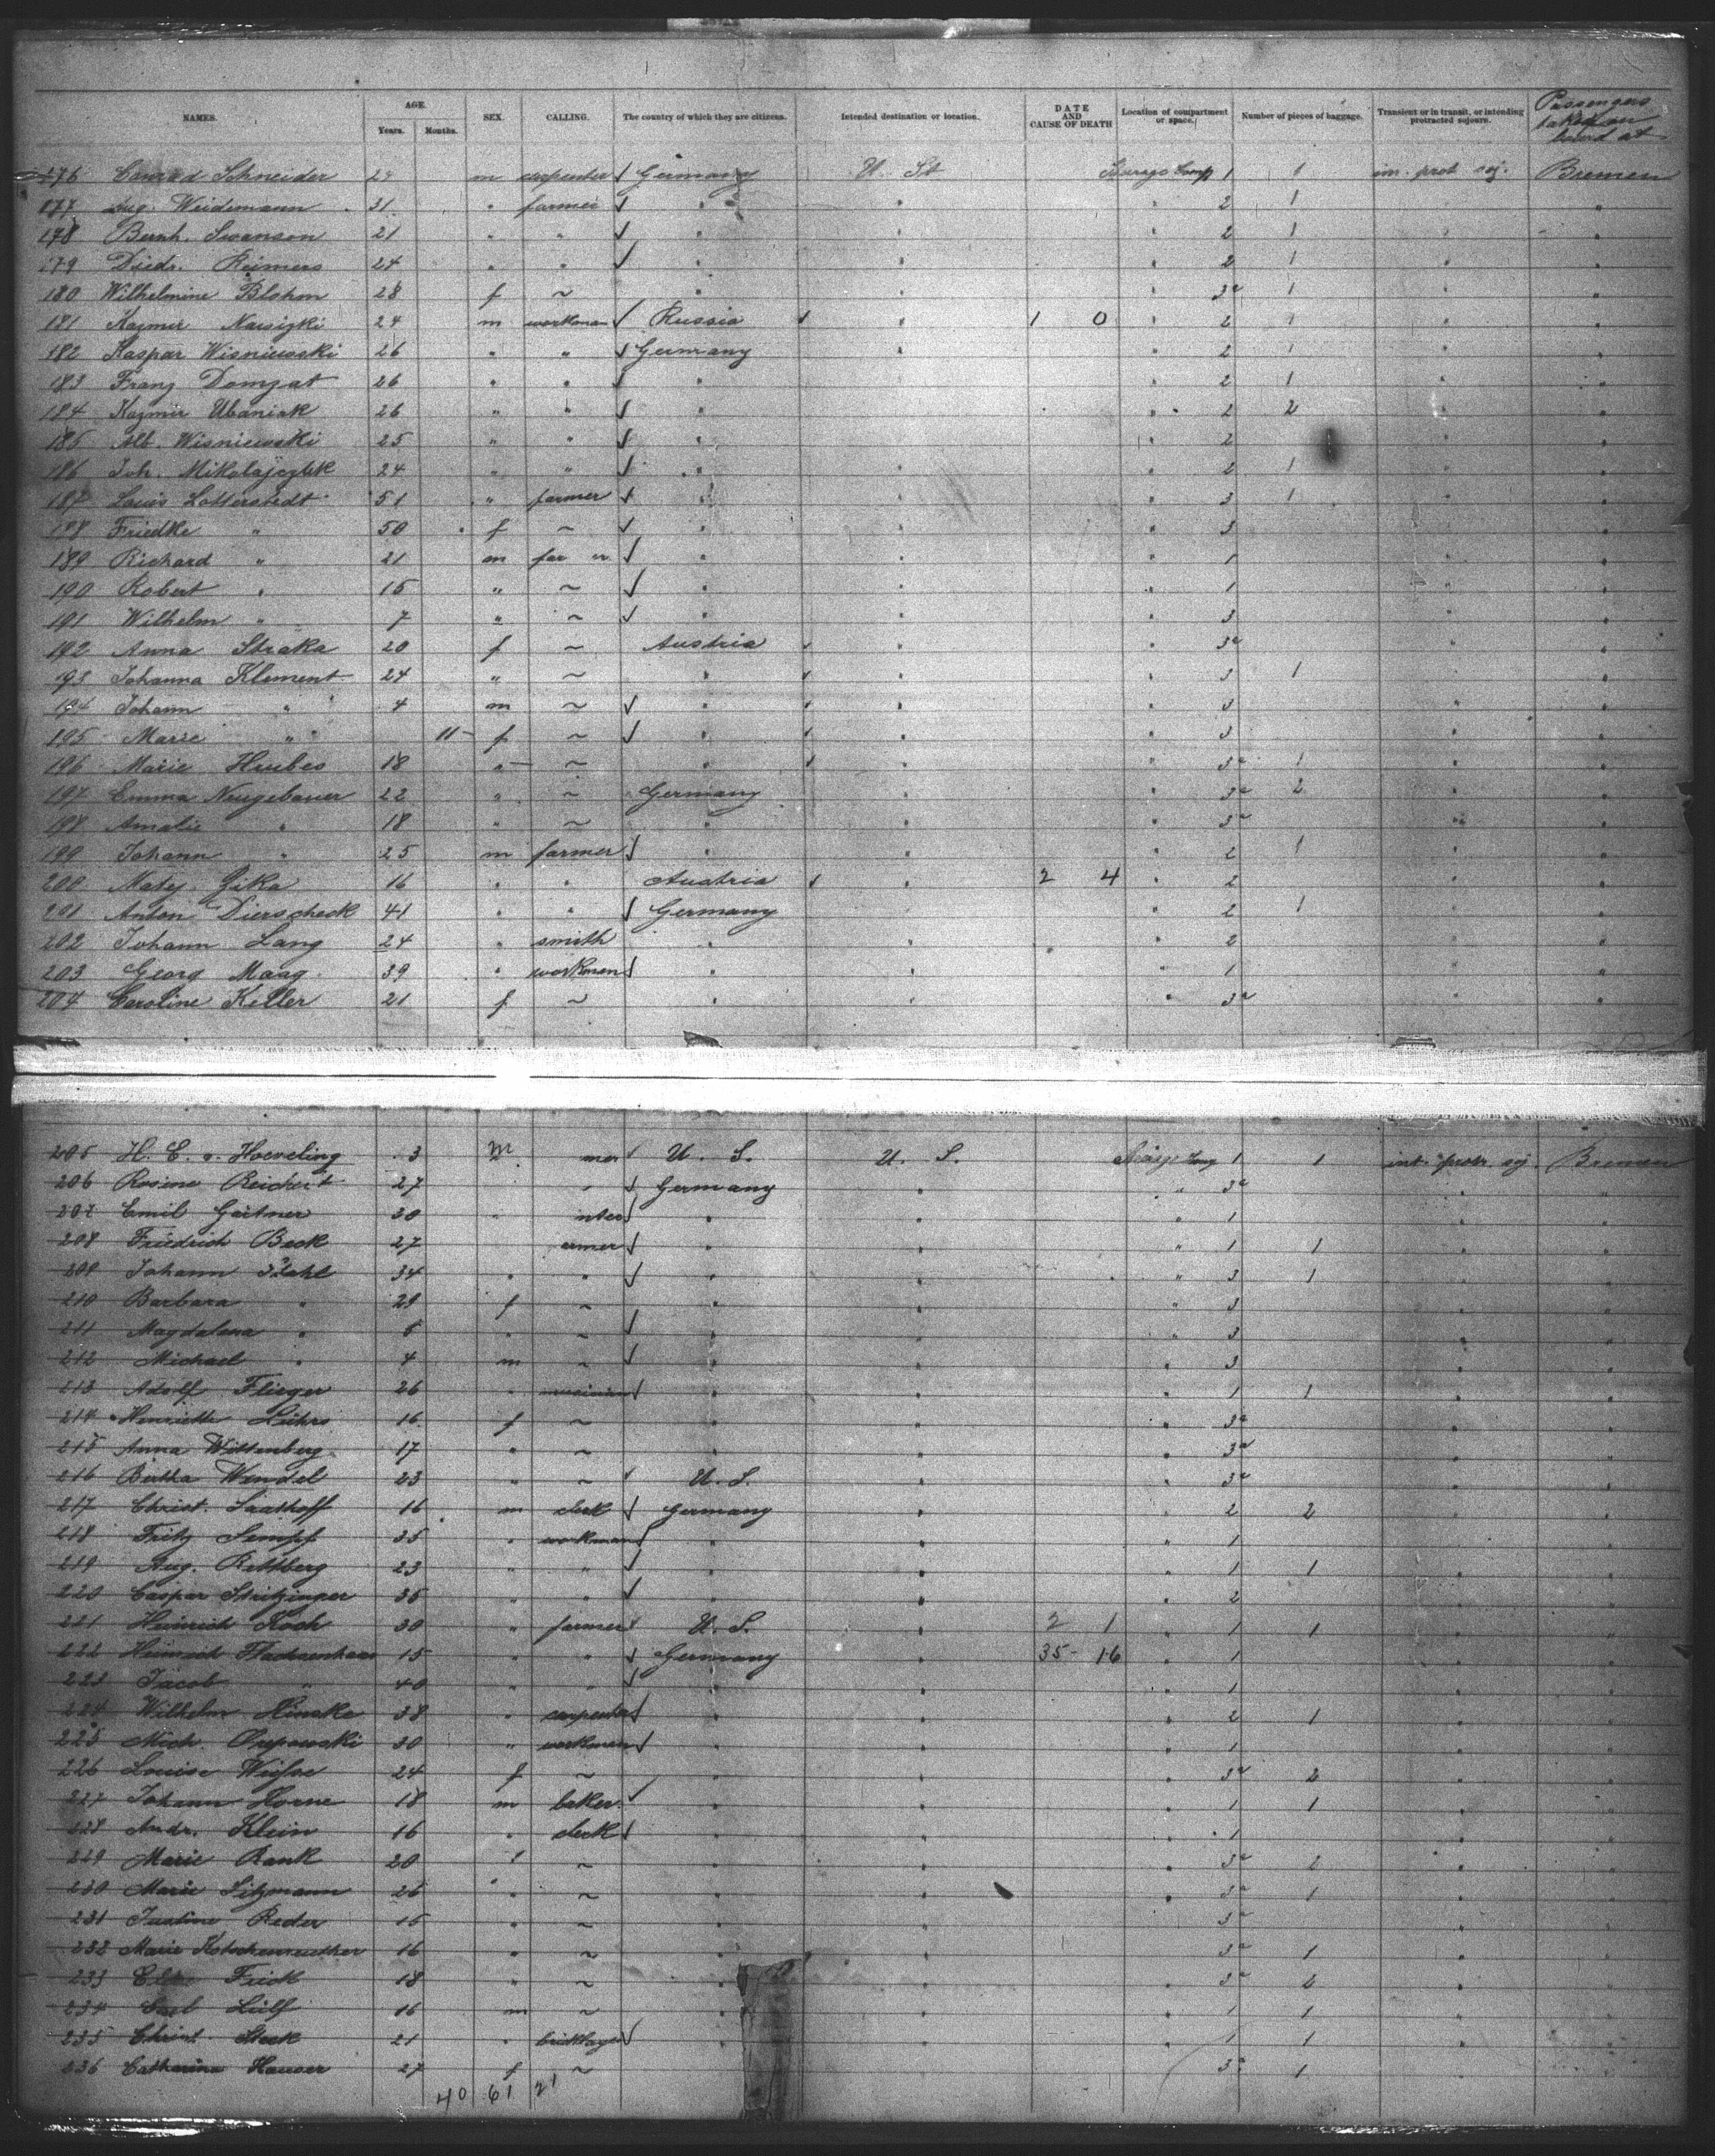 NAMES. AGE. Years. Months. SEX. CALLING. The country of which they are citizens. Intended destination or location. DATE AND CAUSE OF DEATH Location of compartment or space. Number of pieces of baggage. Transient or in transit, or intending protracted sojourn. Passengers taken on board at
176 Conrad Schneider 24 m carpenter ✓ Germany U. St 1 1 in. prot. soj. Bremen
177 Aug. Weidemann 31 " farmer ✓ " " " 2 1 " "
178 Bernh. Swanson 21 " " ✓ " " " 2 1 " "
179 Diedr. Reimers 24 " " ✓ " " " 2 1 " "
180 Wilhelmine Blohm 28 f ~ " " " 3a 1 " "
181 Kazmir 24 m workman ✓ Russia ✓ " 1 0 " 2 1 " "
182 Kaspar Wisniewski 26 " " ✓ Germany " " 2 1 " "
183 Franz Domzat 26 " " ✓ " " 2 1 " "
184 Kazmir Ubaniak 26 " " ✓ " " 2 2 "
185 Alb. Wisniewski 25 " " ✓ " " 2 "
186 Joh. Mikolajczik 24 " " ✓ " " " 2 1 " "
187 Louis Lotterstedt 51 " farmer ✓ " " " 3 1 " "
188 Friedke " 50 f ~ ✓ " " " 3 " "
189 Richard " 21 m far er ✓ " " " 1 " "
190 Robert " 15 " ~ ✓ " " " 1 " "
191 Wilhelm " 7 " ~ ✓ " " " 3 " "
192 Anna Straka 20 f ~ Austria ✓ " " 3a " "
193 Johanna Klement 24 " ~ " ✓ " " 3 1 "
194 Johann " 4 m ~ ✓ " ✓ " " 3 " "
195 Marie " 11 f ~ ✓ " ✓ " " 3 " "
196 Marie Hrubes 18 " ~ " ✓ " " 3a 1 " "
197 Emma Neugebauer 22 " ~ Germany " " 3a 2 " "
198 Amalie " 18 " ~ " " " 3a " "
199 Johann " 25 m farmer ✓ " " " 2 1 " "
200 Matej Zika 16 " " Austria ✓ " 2 4 " 2 " "
201 Anton Dierscheck 41 " " ✓ Germany " " 2 1 " "
202 Johann Lang 24 " smith " " " 2 " "
203 Georg Maag 39 " workman ✓ " " " 1 " "
204 Caroline Keller 21 f ~ " " " 3a " "
205 H. C. v. Hoeveling 3 m mer ✓ U. S. U. S. 1 1 int. protr. soj. Bremen
206 Rosine Reichert 27 " ✓ Germany " " 3a " "
207 Emil Gärtner 30 " inter ✓ " " " 1 " "
208 Friedrich Beck 27 armer ✓ " " " 1 1 " "
209 Johann Stahl 34 " " ✓ " " " 3 1 "
210 Barbara " 29 f ~ " " " 3 "
211 Magdalena " 5 " ~ ✓ " " " 3 " "
212 Michael " 4 m ~ ✓ " " " 3 " "
213 Adolf Flieger 26 " musician ✓ " " " 1 1 " "
214 Henriette Lührs 16 f ~ " " " 3a "
215 Anna Wittenberg 17 " ~ " " " 3a "
216 Bertha Wendel 23 " ~ ✓ U. S. " " 3a "
217 Christ. Saathoff 16 m clerk ✓ Germany " " 2 2 "
218 Fritz Sempf 35 " workman ✓ " " " 1 "
219 Aug. Rettberg 23 " " ✓ " " " 1 1 "
220 Caspar Stritzinger 35 " " ✓ " " 2 "
221 Heinrich Koch 30 " farmer ✓ U. S. " 2 1 " 1 1 "
222 Heinrich 15 " " ✓ Germany " 35 - 16 " 1 "
223 Jacob " 40 " " ✓ " " " 1 "
224 Wilhelm Hinske 38 " carpenter ✓ " " " 2 1 "
225 Mich. 30 " workman ✓ " " " 1 "
226 Louise 24 f ~ " " " 3a 2 "
227 Johann Horne 18 m baker ✓ " " " 1 1 "
228 Andr. Klein 16 " clerk ✓ " " " 1 "
229 Marie Rank 20 f ~ " " " 3a 2 "
230 Marie Sitzmann 26 " ~ " " " 3a 1 "
231 Justine Reder 15 " ~ " " 3a "
232 Marie Kotschenreuther 16 " ~ " " 3a 1 "
233 Frick 18 " ~ " " " 3a 2 "
234 Lülf 16 m ~ " " " 1 1 "
235 Christ. Steck 21 " bricklayer ✓ " " " 1 1 "
236 Catharina Hauser 27 f ~ " " 3a 1 "
40 61 21